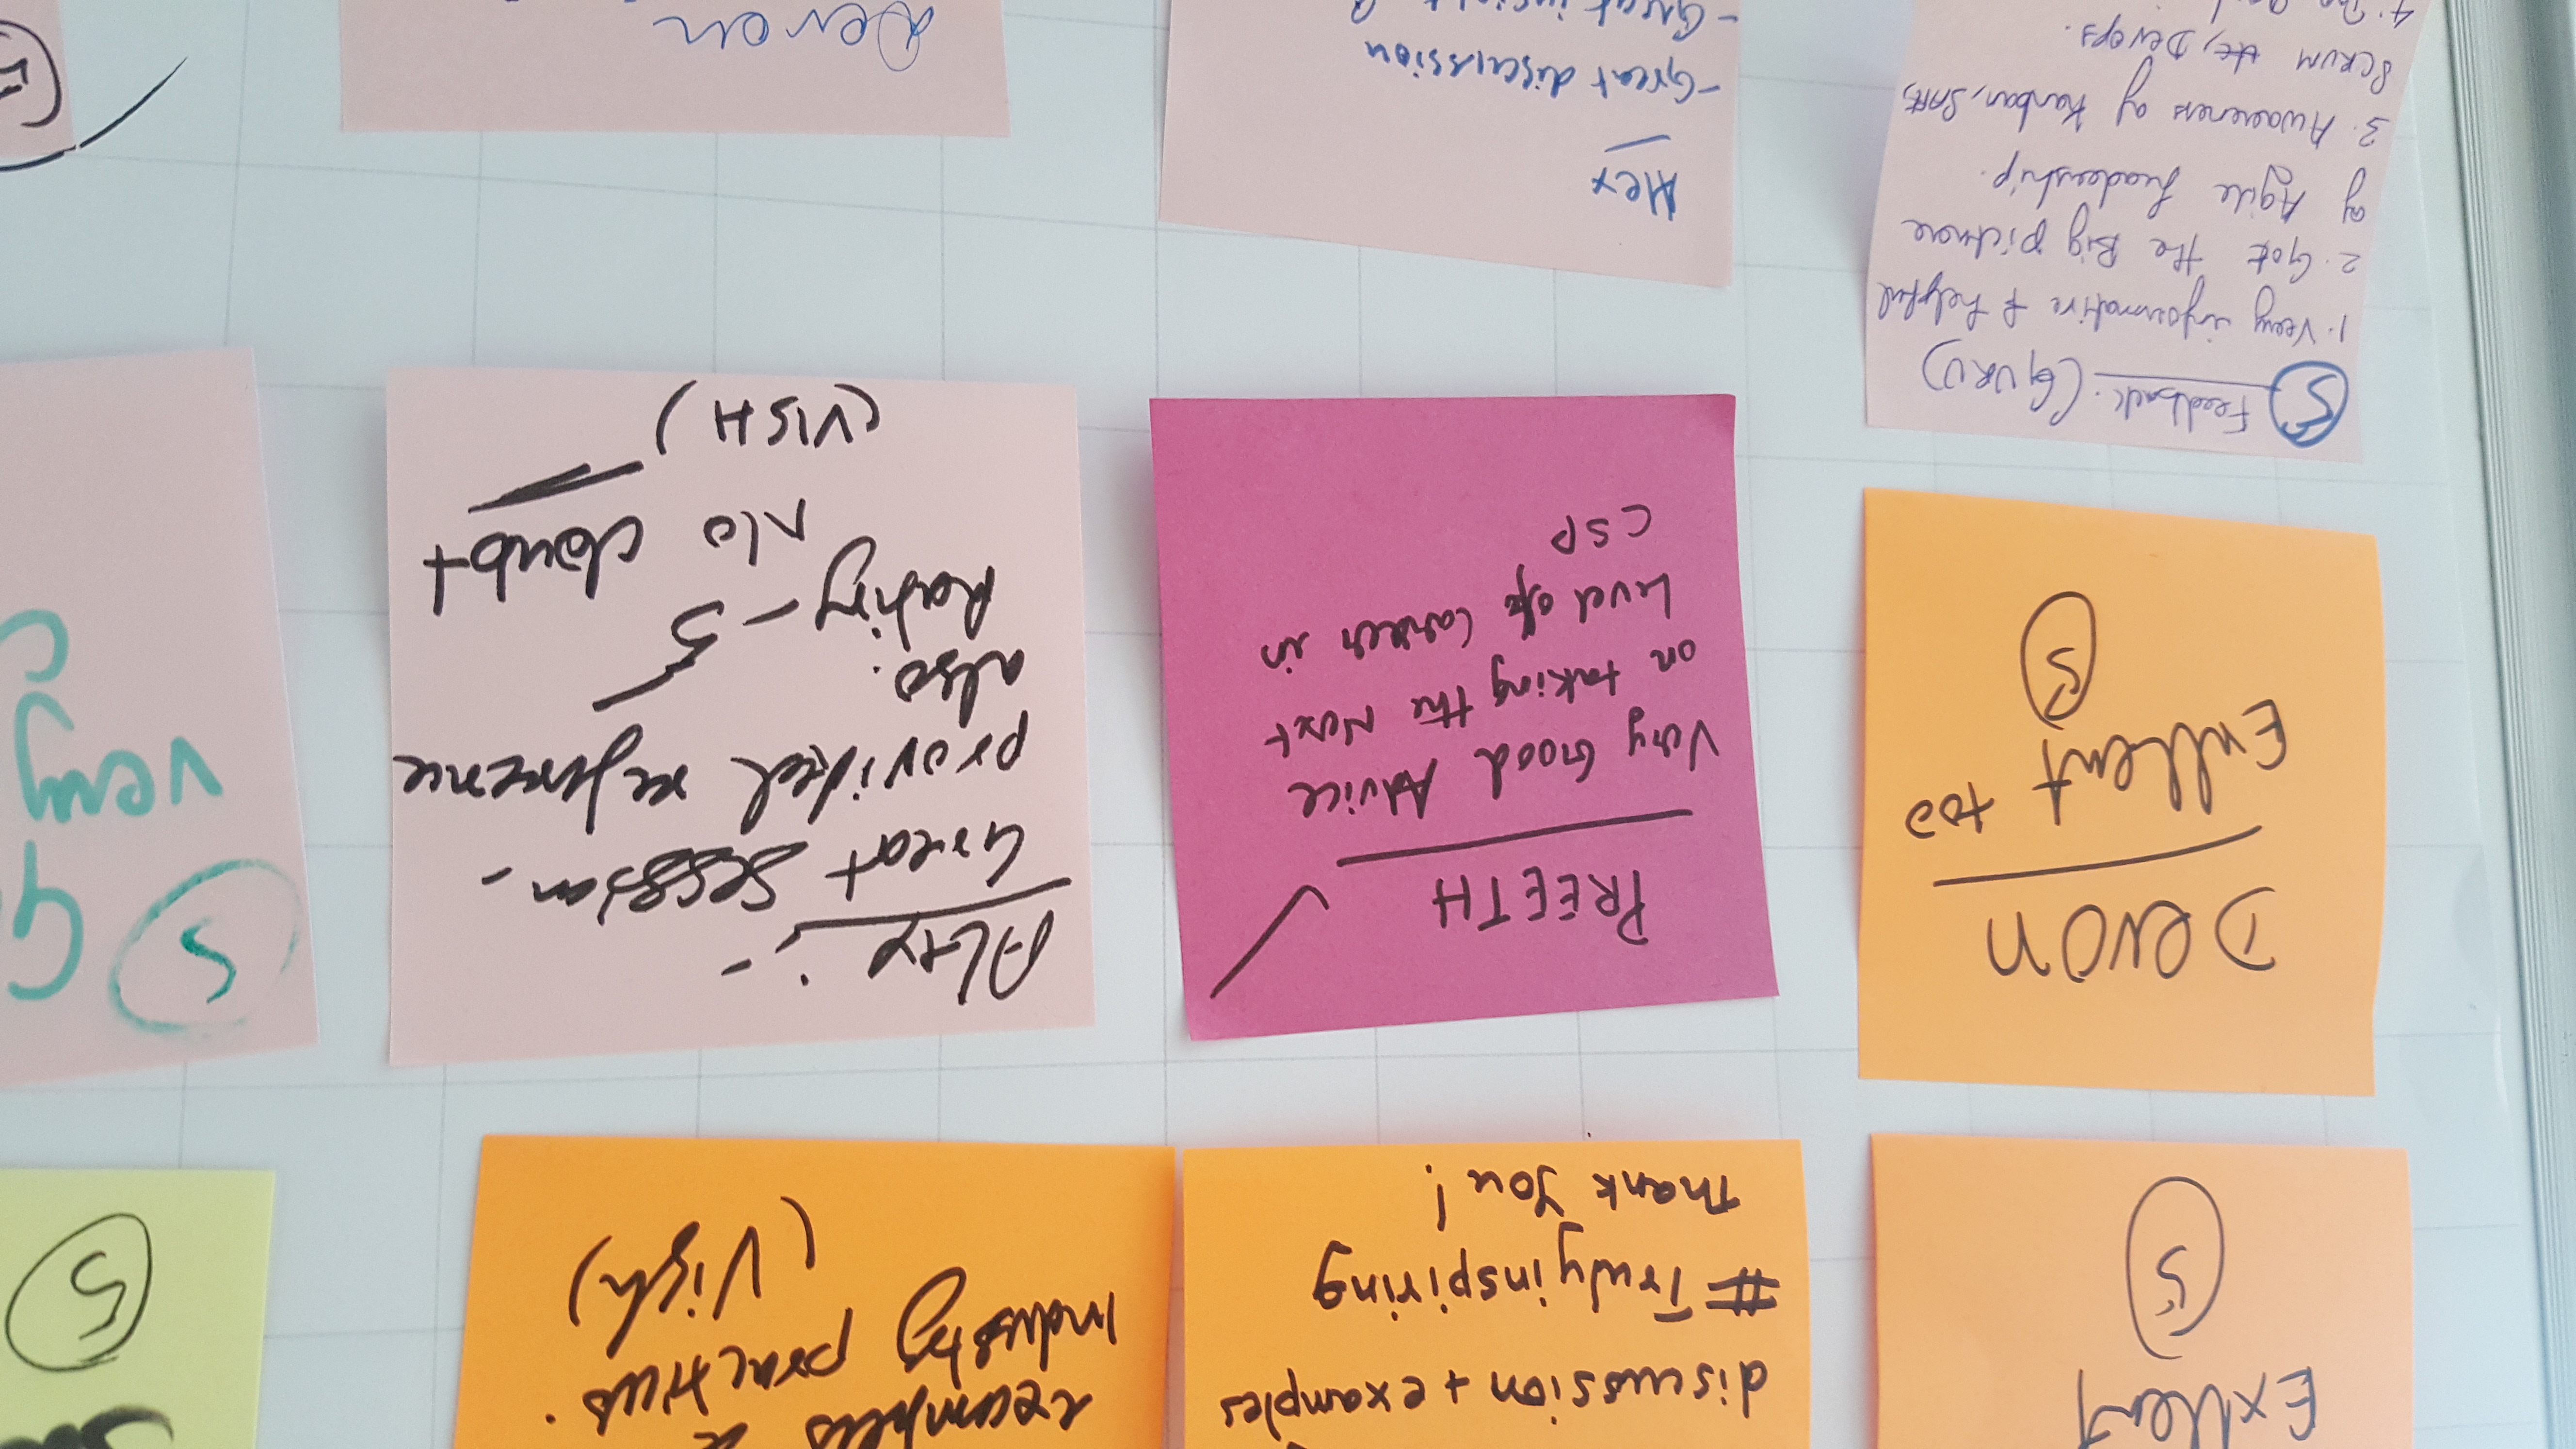 Exllent
5
discussion + examples
# Trulyinspiring
Thank You!
examples &
Industry practices.
(Vish)
5
Devon
Exllent too
5
PREETH
Very Good Advice
on taking the Next
Level of Career in
CSP
Alex :-
Great session.
provided reference
also.
Rating - 5
No doubt
(VISH)
5
very
5 Feedback. (GURU)
1. Very informative & helpful
2. Got the Big picture
of Agile Leadership.
3. Awareness of Kanban, SAFe,
SCRUM etc, Devops.
4.
Alex
- Great discussion
- Great insight
Devon
5